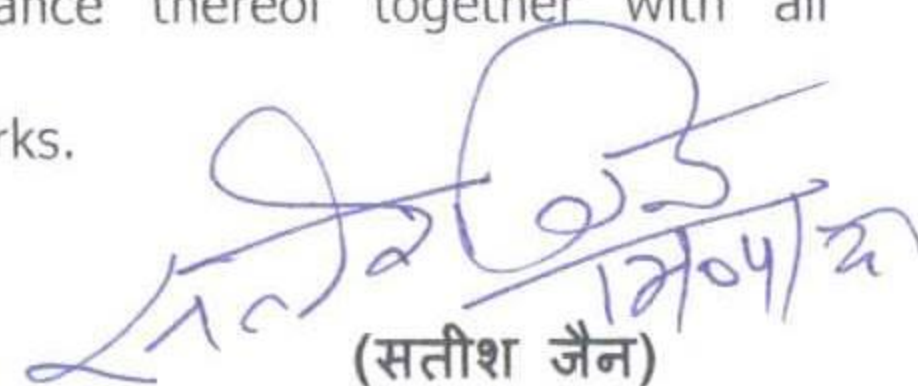 ance thereof together with all
rks.
(सतीश जैन)